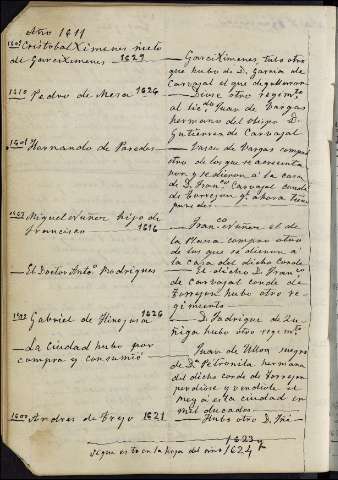 Año 1611
1609 Cristobal Ximenes nieto
de Garci Ximenes — 1629
Garci Ximenes tubo otro
que hubo de D. Garcia de
Carvajal el que
1610 Pedro de Mesa 1624
Diose otro regimto
al licdo Juan de Vargas
hermano del obispo D.
Gutierres de Carvajal
Hernando de Paredes
Vasco de Vargas compró
otro de los que se acresenta
ron y se dieron á la casa
de D. Franco Carvajal conde
de Torrejon qe ahora tiene
Paredes
Miguel Nuñez hijo de
Francisco — 1616
Franco Nuñez el de
la Massa compro otro
de los que se dieron á
la casa del dicho Conde
El Doctor Anto Rodrigues
El dicho D. Franco
de Carvajal conde de
Torrejon hubo otro re-
gimiento
Gabriel de Hinojosa 1626
D. Fadrique de Zu-
ñiga hubo otro regimto
La Ciudad hubo por
compra y consumió
Juan de Ulloa suegro
de Da Petronila hermana
del dicho conde de Torrejon
perdiose y vendiole el
Rey á esta ciudad en
mil ducados
1600 Andres de Trejo 1621
Hubo otro D.
1623 y
Sigue esto en la hoja del año 1624